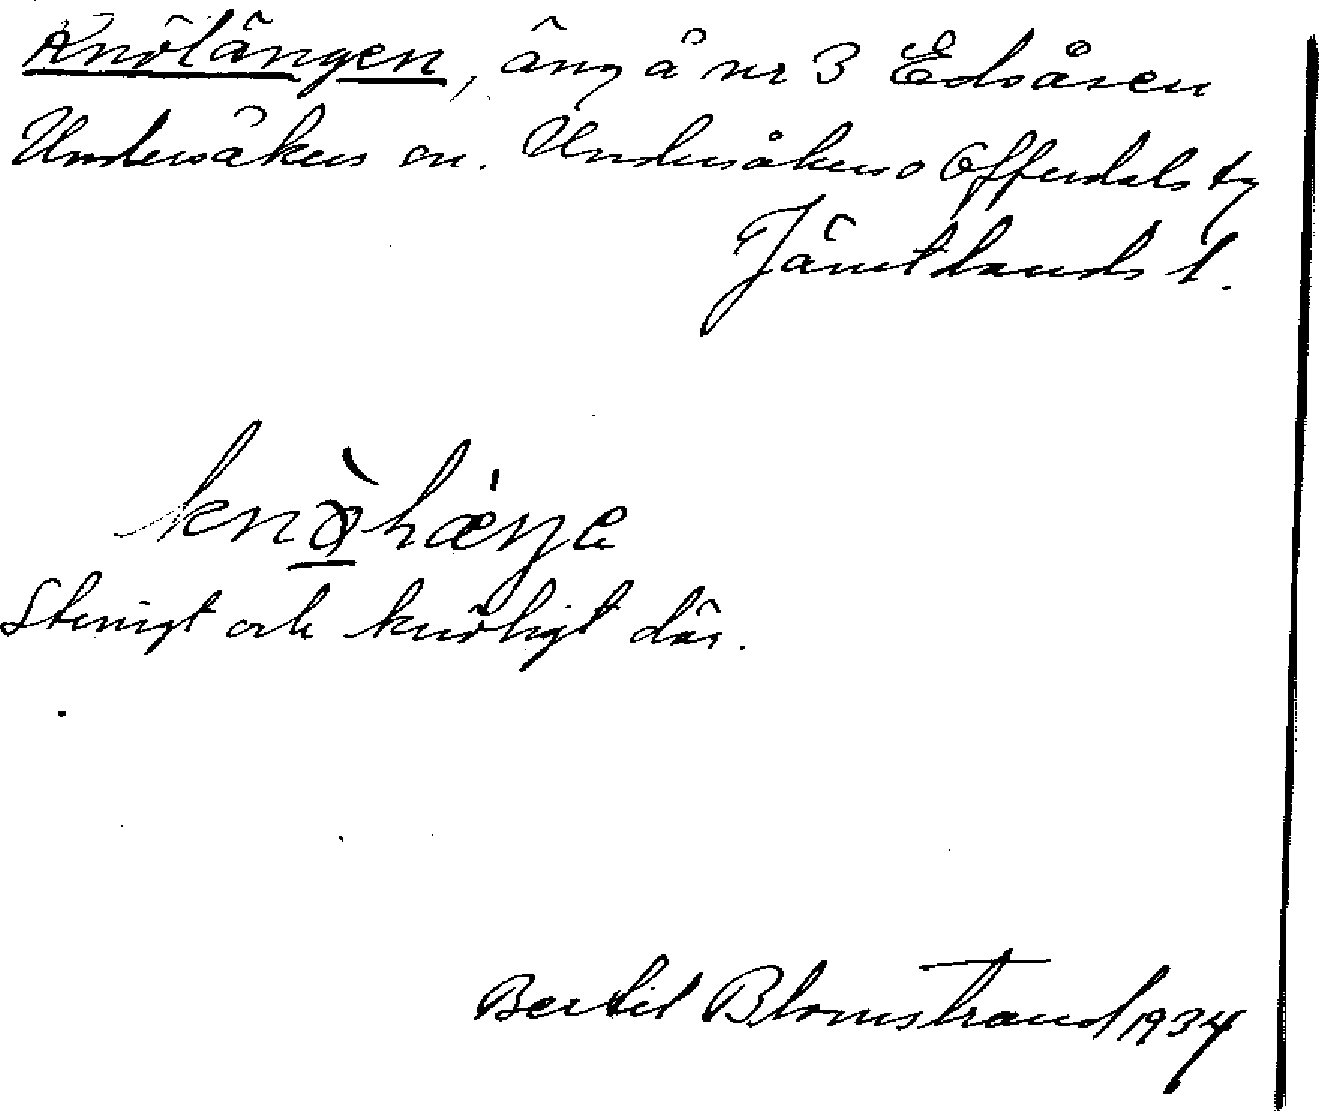 Knölängen, äng å nr 3 Edsåsen
Undersåkers sn. Undersåkers o Offerdals tg
Jämtlands l.
Stenigt och knöligt där.
Bertil Blomstrand 1934